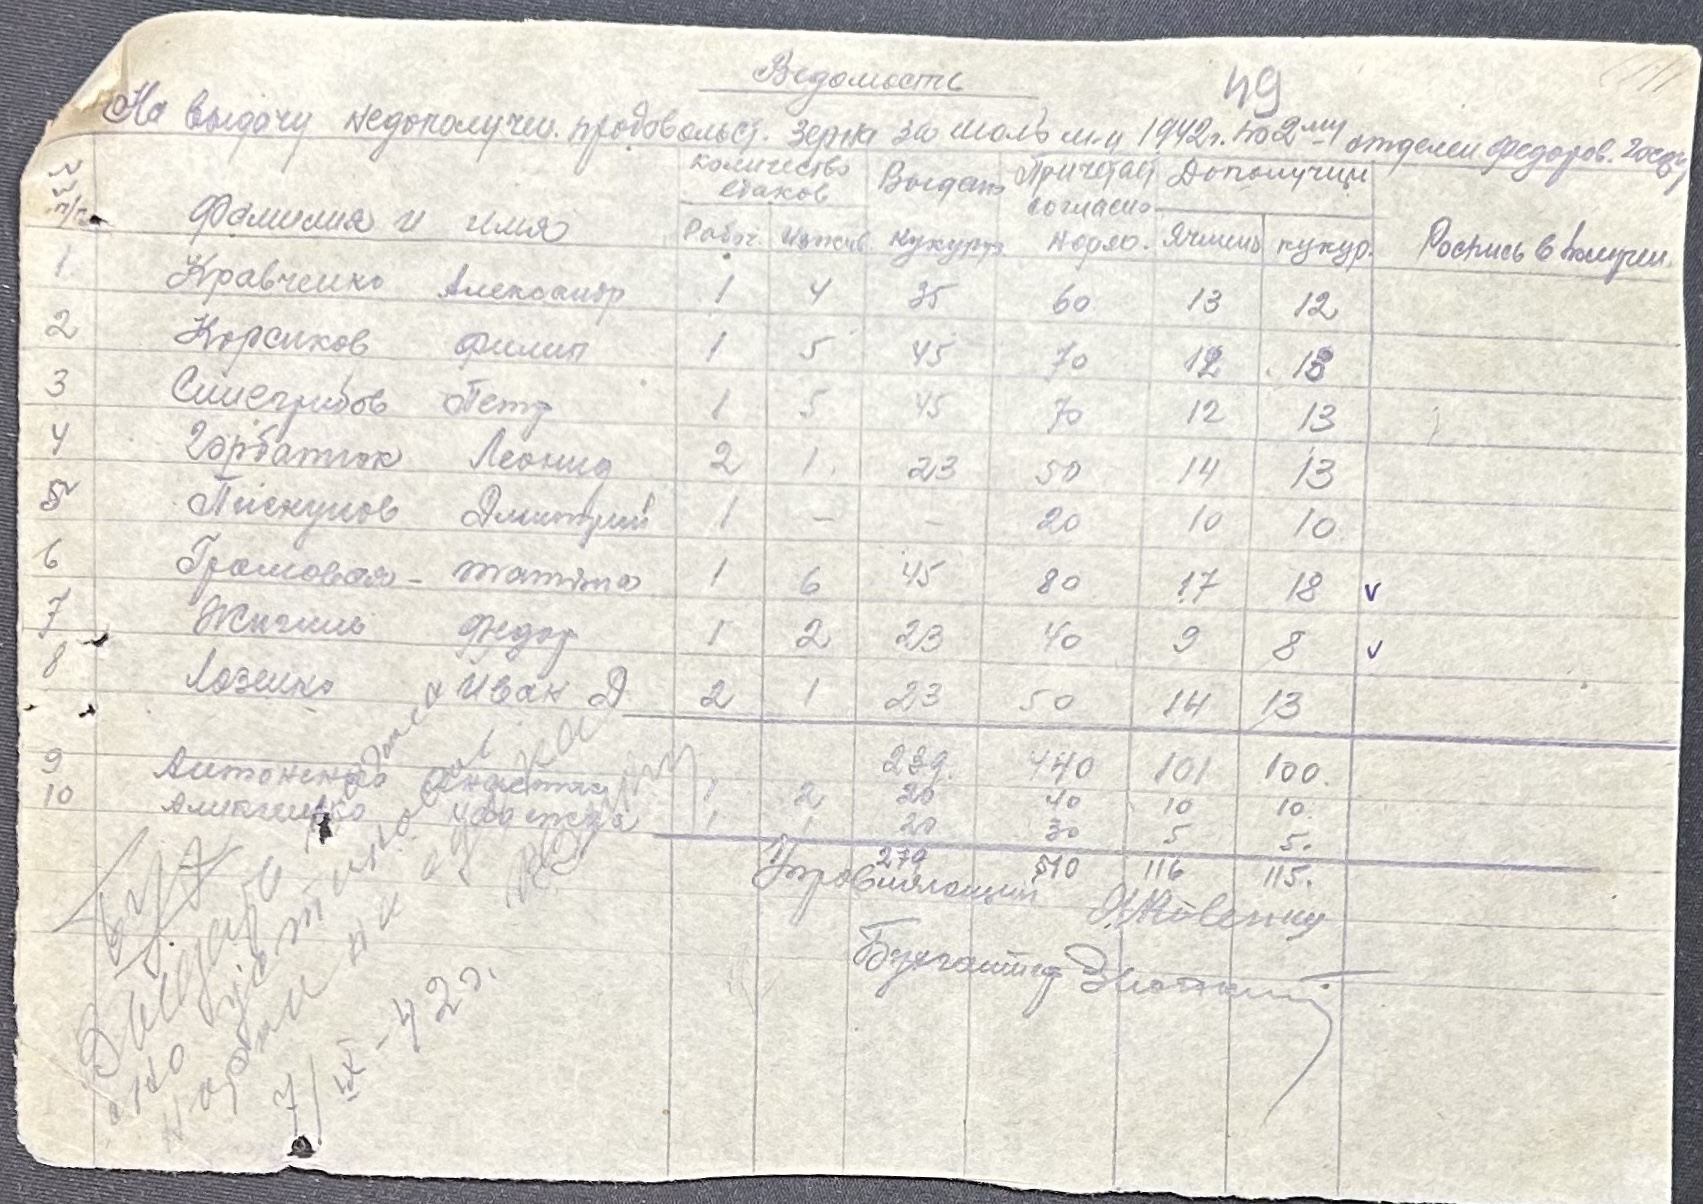 Ведомость
49
На выдачу недополучен. продовольст. зерна за июль м-ц 1942 г. по 2му отделен Федоров.
№ п/п
Фамилия и имя
Количество едаков
Выдано
Причетает согласно
Дополучи
Рабоч. Иждив. Кукуруз Норм. Ячмень кукур. Роспись в получен.
1 Кравченко Александр 1 4 35 60 13 12
2 Корсиков Филип 1 5 45 70 12 13
3 Синегрибов Петр 1 5 45 70 12 13
4 Горбатюк Леонид 2 1 23 50 14 13
5 Пискунов Дмитрий 1 — — 20 10 10
6 Громовая – 1 6 45 80 17 18 v
7 Жигиль Федор 1 2 23 40 9 8 v
8 Лозенко Иван Д 2 1 23 50 14 13
239 440 101 100.
9 Антоненко 1 2 20 40 10 10.
10 1 1 20 30 5 5.
279 510 116 115.
Управляющий
Бухгалтер
Выдать
7/IX-42 г.